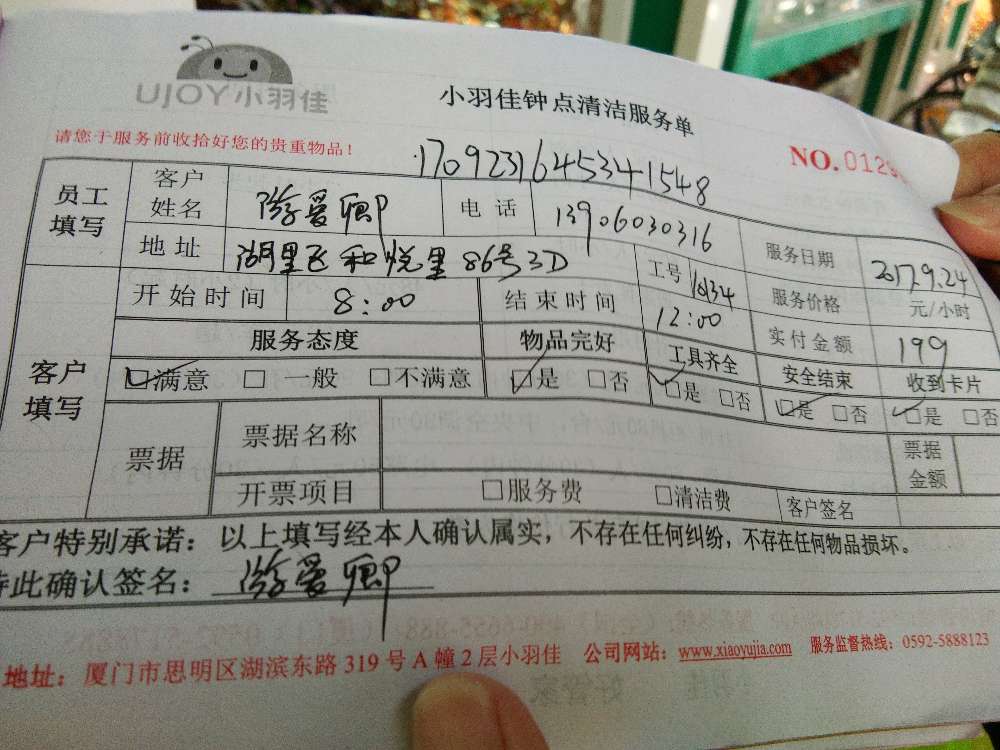 UJOY小羽佳
小羽佳钟点清洁服务单
请您于服务前收拾好您的贵重物品！
NO.0129
1709231645341548
员工填写 客户姓名 游爱卿 电话 13906030316 服务日期 2017.9.24
地址 湖里区和悦里86号3D 工号 1634 服务价格 元/小时
客户填写 开始时间 8:00 结束时间 12:00 实付金额 199
服务态度 物品完好 工具齐全 安全结束 收到卡片
☑满意 □一般 □不满意 ☑是 □否 ☑是 □否 ☑是 □否 ☑是 □否
票据 票据名称 票据金额
开票项目 □服务费 □清洁费 客户签名
客户特别承诺：以上填写经本人确认属实，不存在任何纠纷，不存在任何物品损坏。
特此确认签名：游爱卿
地址：厦门市思明区湖滨东路319号A幢2层小羽佳 公司网站：www.xiaoyujia.com 服务监督热线：0592-5888123